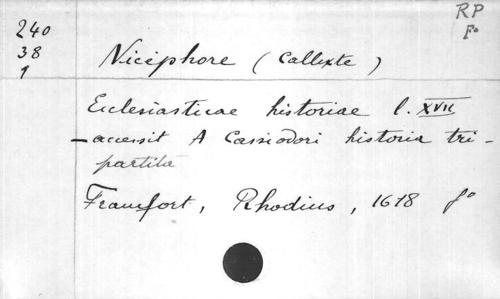 240
38
1
RP
Fº
Nicéphore (Callixte)
Ecclesiasticae historiae l. XVII
– accessit A Cassiodori historia tri-
partita
Francfort, Rhodius, 1618 fº